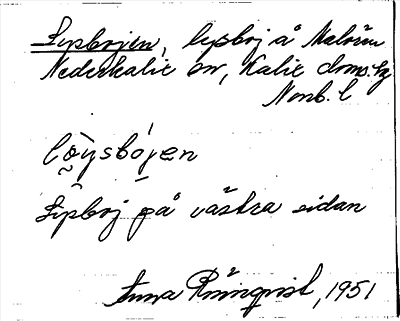 Lysbojen, lysboj å Malören
Nederkalix sn, Kalix doms.
Nonb. l
löysbójen
Lysboj på västra sidan
Anna Rönnqvist, 1951